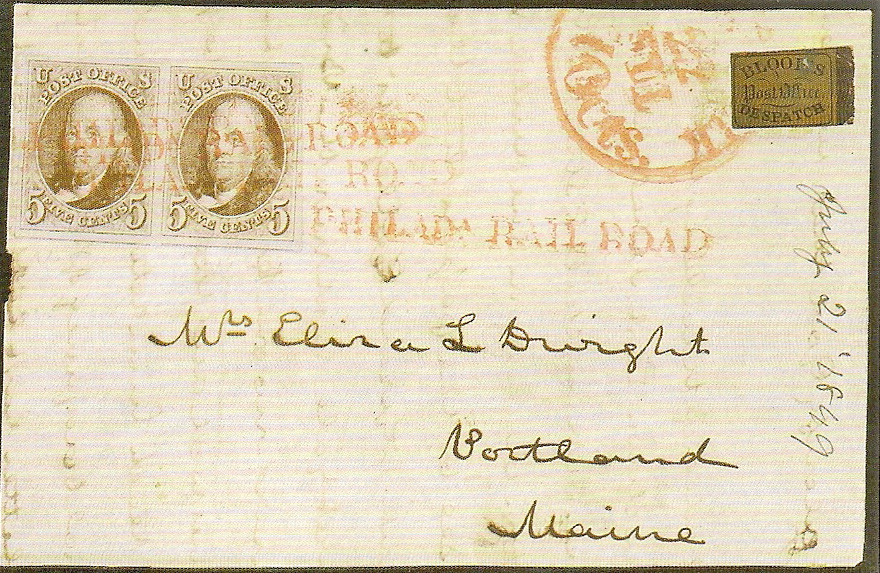 U S
POST OFFICE
5 FIVE CENTS 5
U S
POST OFFICE
5 FIVE CENTS 5
RAIL ROAD
RAIL ROAD
PHILADA RAIL ROAD
22
JUL
10CTS.
BLOOD'S
Post Office
DESPATCH
July 21 '1849
Mrs Eliza L Dwight
Portland
Maine